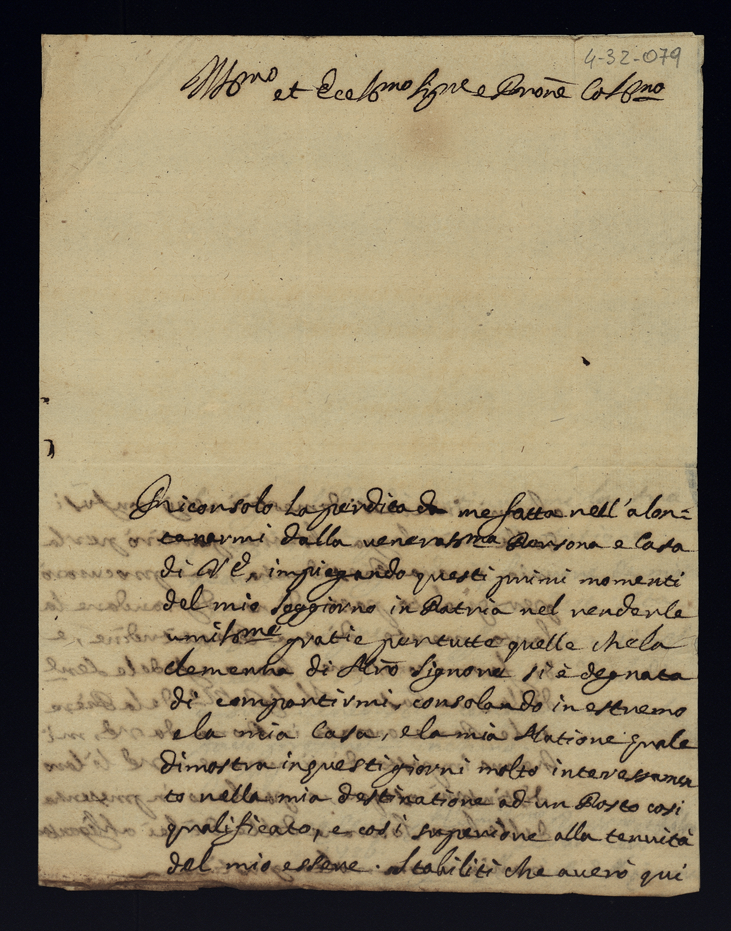 4-32-079
Ill.mo et Ecce.mo Sig.re e Prone Col.mo
Riconsolo la perdita da me fatta nell'alon=
tanarmi dalla veneras.ma Persona e Casa
di V E, impiegando questi primi momenti
del mio soggiorno in Patria nel renderle
umiliss.me gratie per tutte quelle che la
clemenza di Nro Signore si è degnata
di compartirmi, consolando in estremo
e la mia Casa, e la mia Natione quale
dimostra in questi giorni molto interessamen
to nella mia destinatione ad un Posto così
qualificato, e così superiore alla tenuità
del mio essere. Stabiliti che averò qui